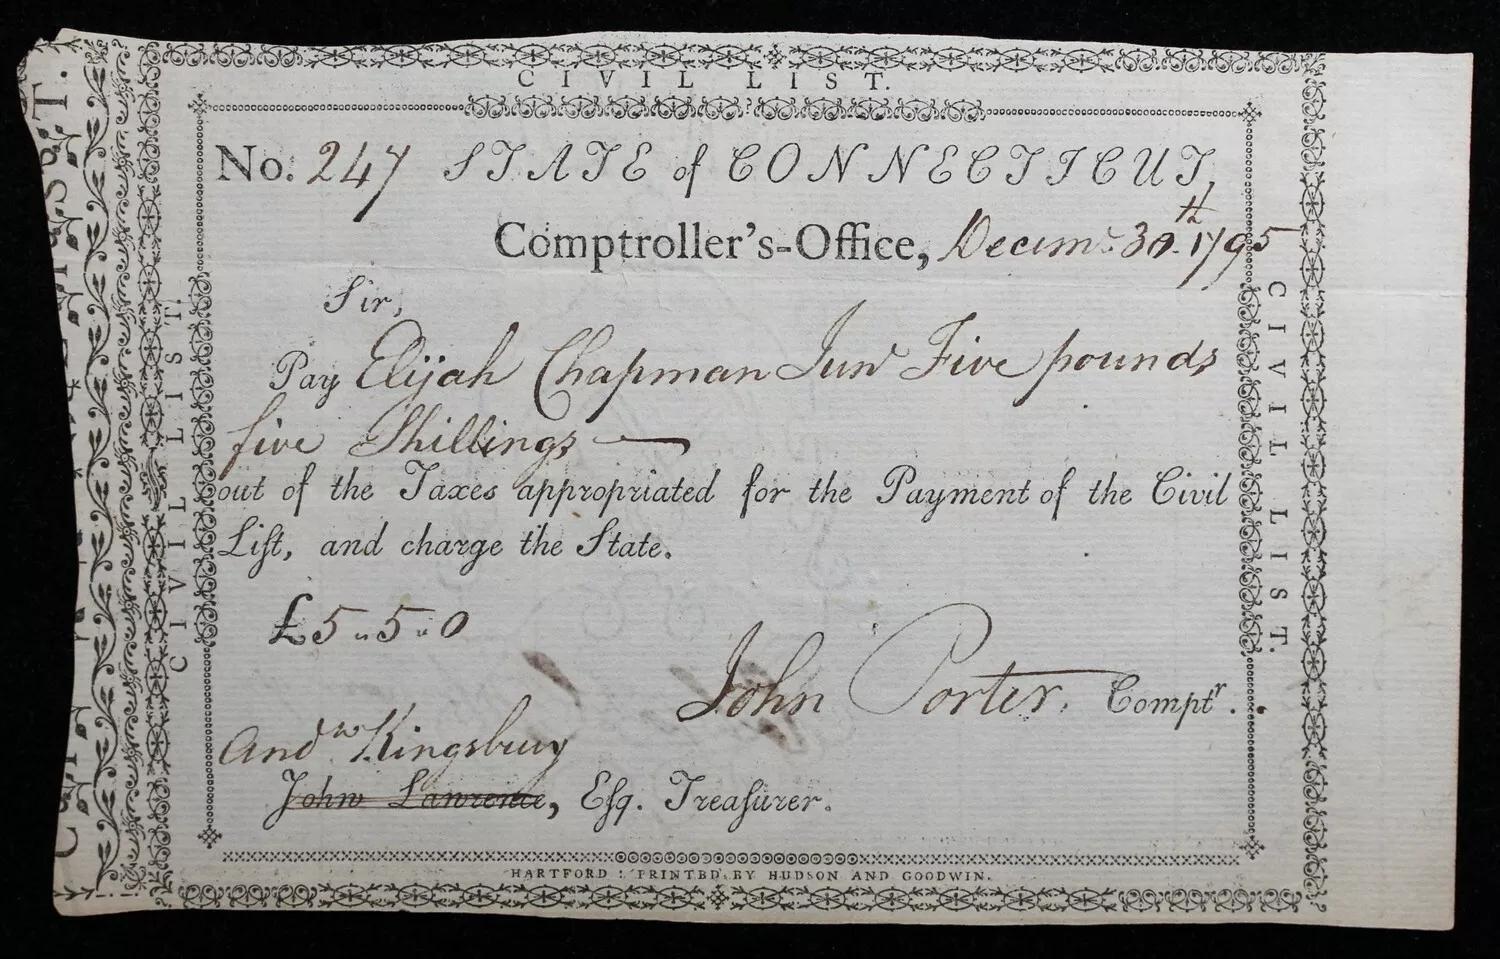 CIVIL LIST.
No. 247 STATE of CONNECTICUT,
Comptroller's-Office, Decem. 30th. 1795
Sir,
Pay Elijah Chapman Junr Five pounds
five Shillings
out of the Taxes appropriated for the Payment of the Civil
Liſt, and charge the State.
£5 " 5 " 0
John Porter, Comptr.
Andw Kingsbury
John Lawrence, Eſq. Treaſurer.
HARTFORD: PRINTED BY HUDSON AND GOODWIN.
CIVIL LIST.
CIVIL LIST.